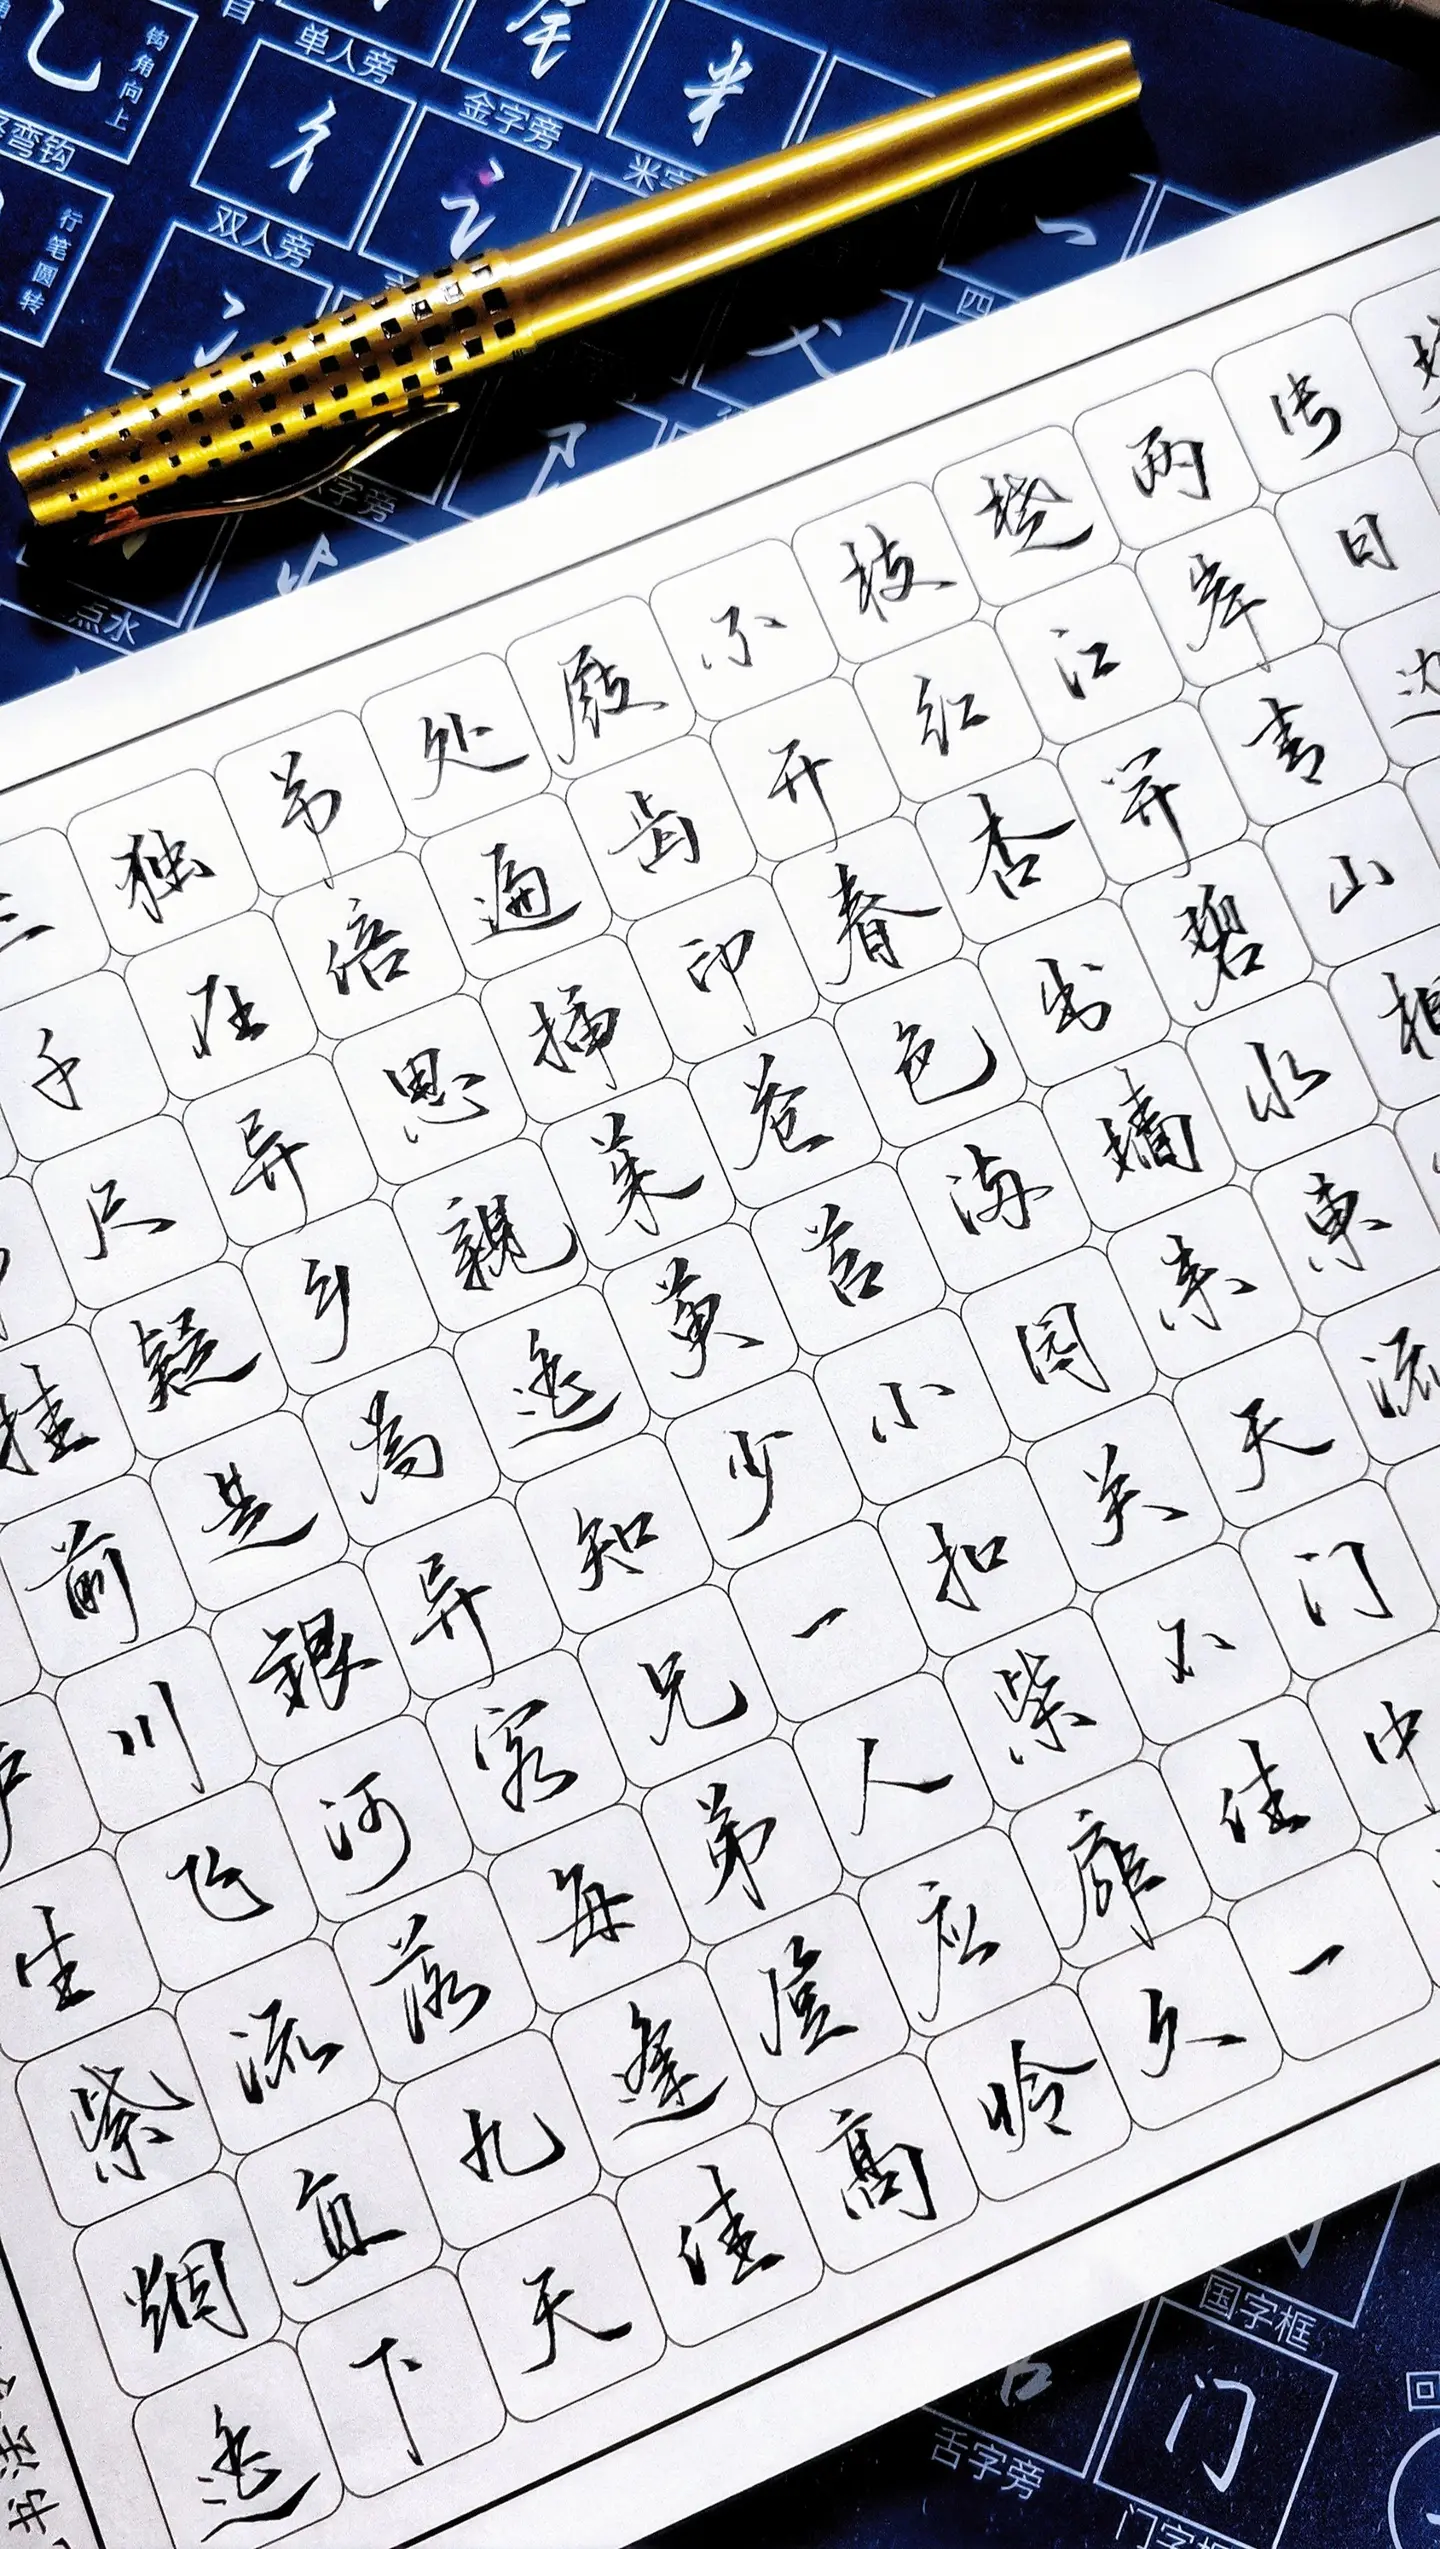 钩角向上
弯钩
单人旁
金字旁
行笔圆转
双人旁
字旁
点水
片日边
两岸青山相
楚江开碧水东流
枝红杏出墙来天门中
不开春色满园关不住一
屐齿印苍苔小扣柴扉久
处遍插茱萸少一人应怜
节倍思亲遥知兄弟登高
独在异乡为异客每逢佳
三千尺疑是银河落九天
挂前川飞流直下
生紫烟遥
国字框
舌字旁
门
门字框